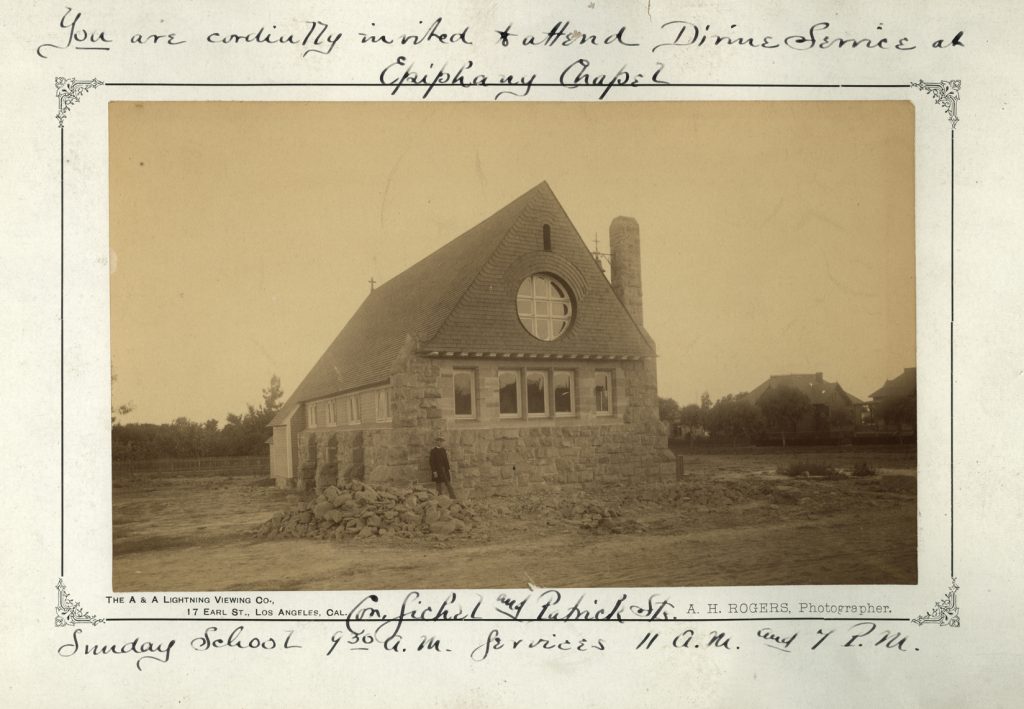 You are cordially invited to attend Divine Service at
Epiphany Chapel
THE A & A LIGHTNING VIEWING CO.,
17 EARL ST., LOS ANGELES, CAL.
Cor. Sichel and Patrick Sts.
A. H. ROGERS, Photographer.
Sunday School 9 30 A. M. Services 11 A. M. and 7 P. M.